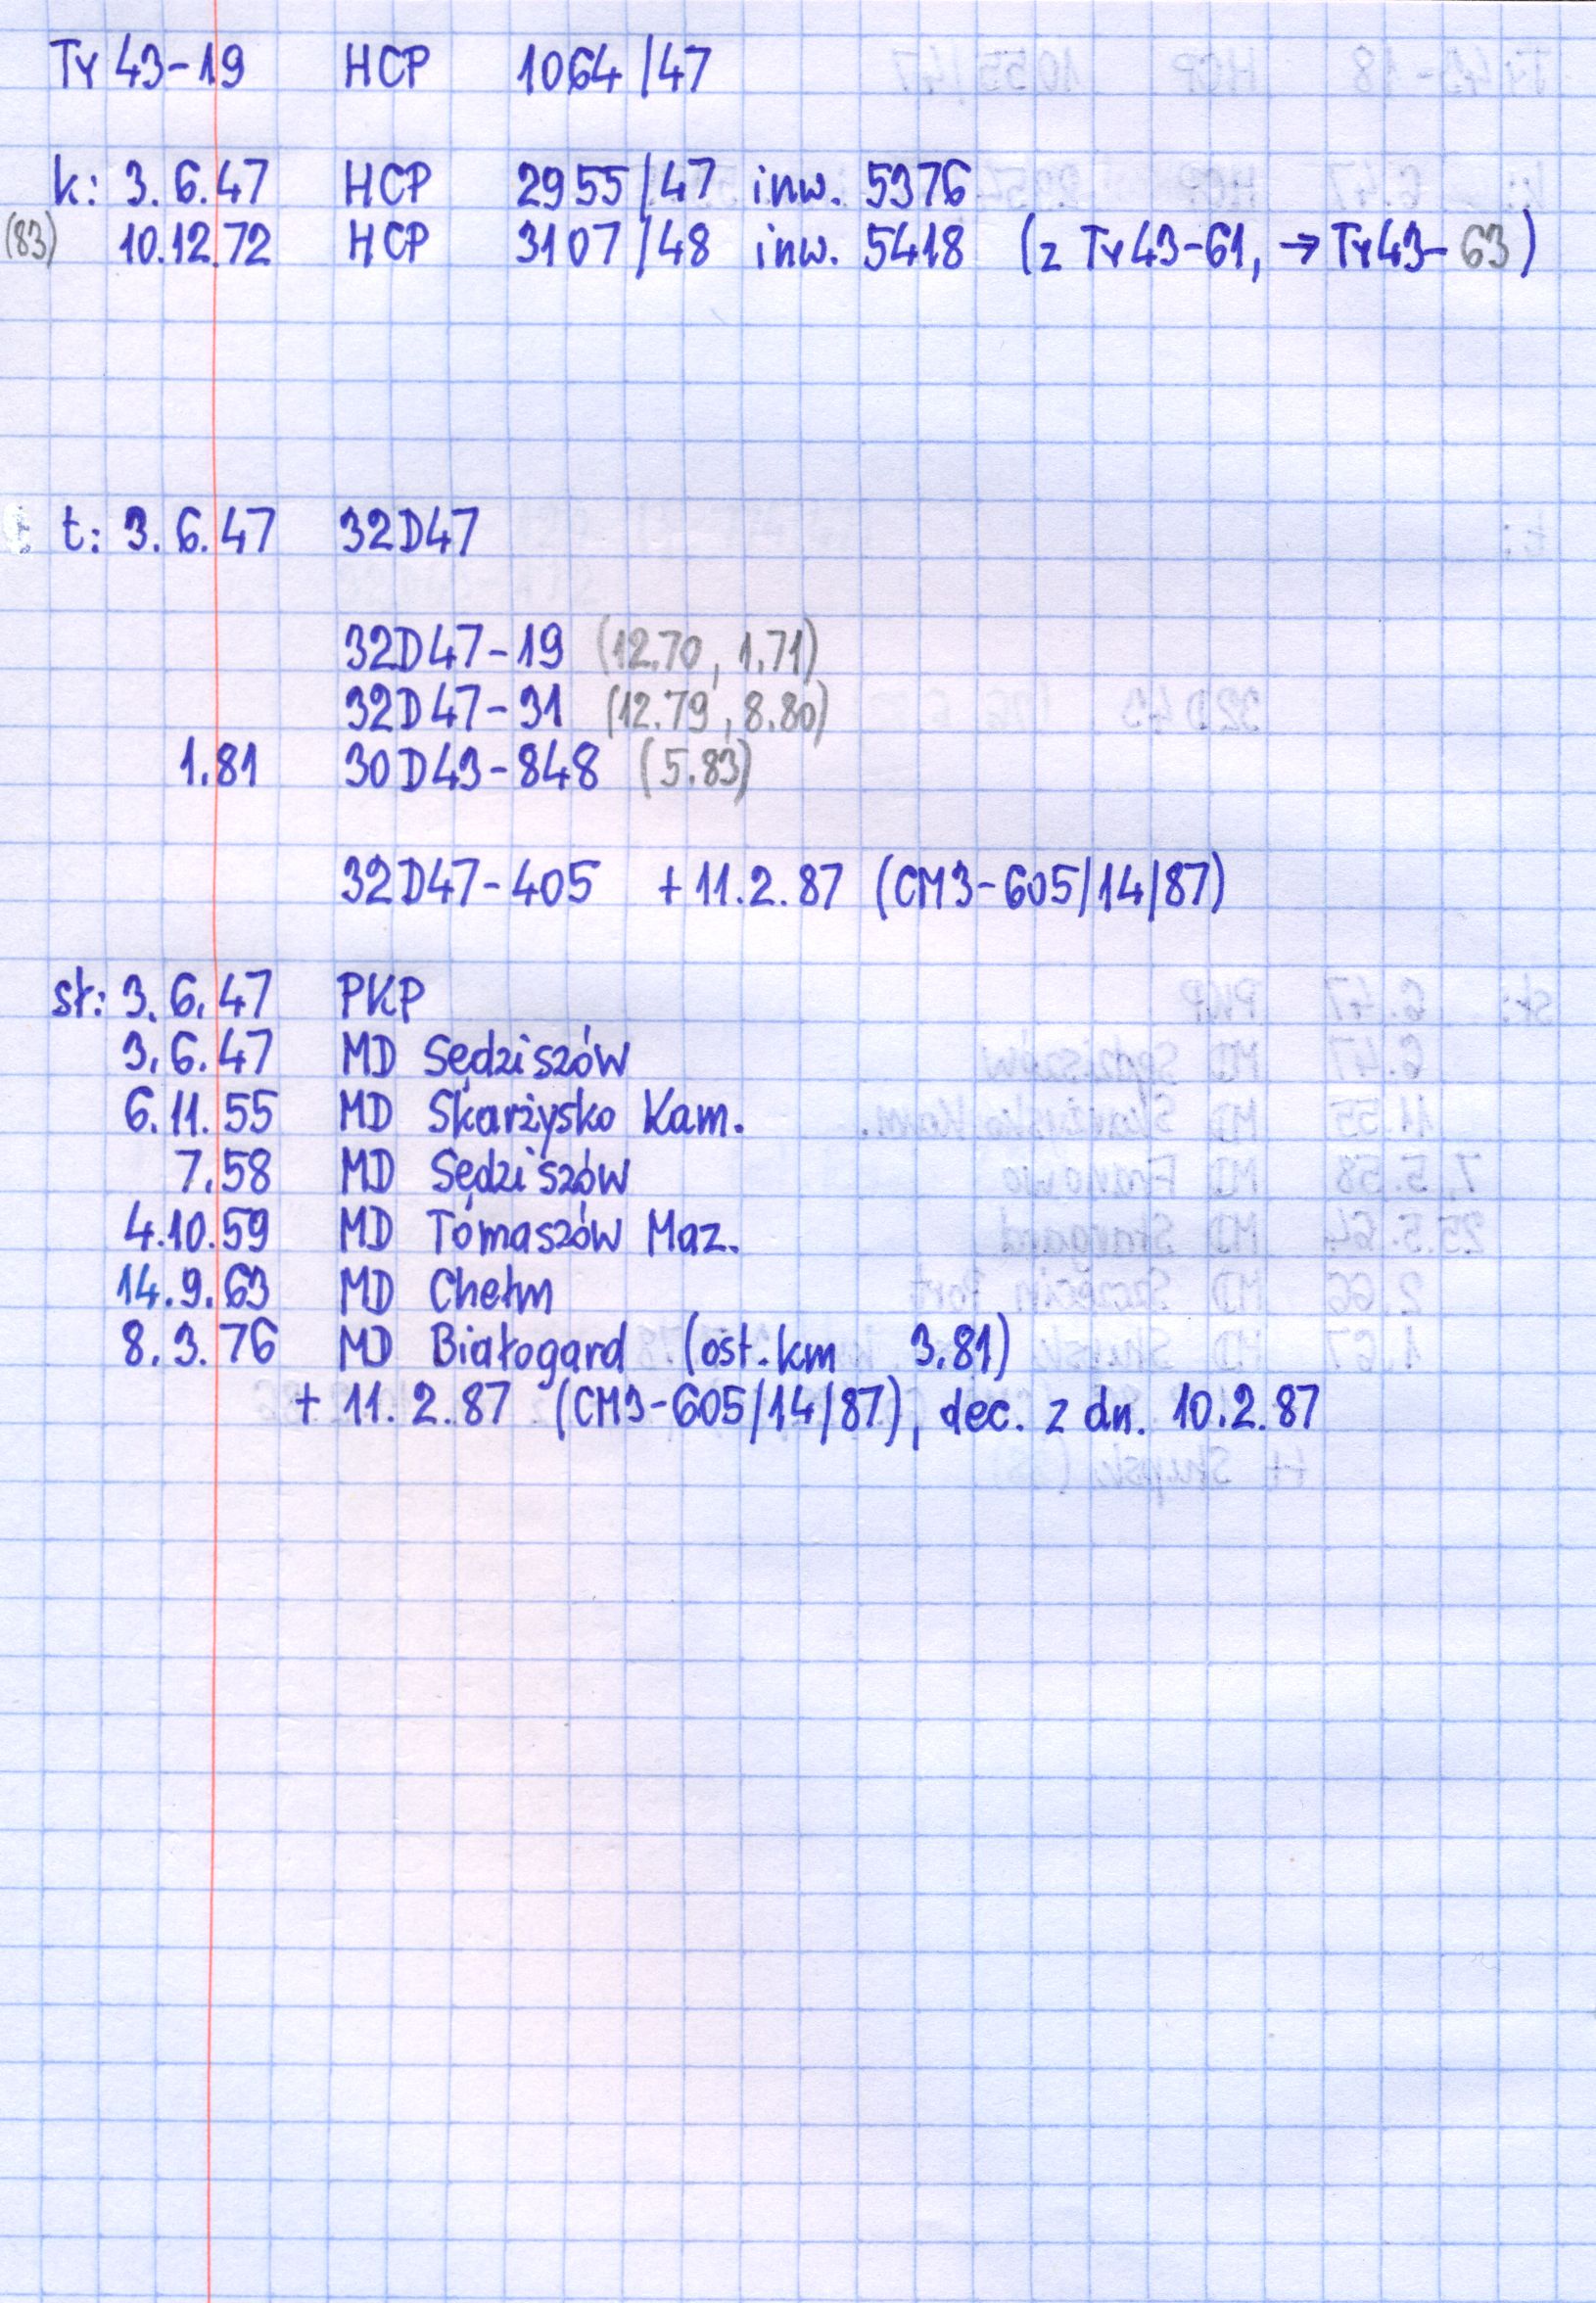 Ty 43-19 HCP 1064/47
k: 3.6.47 HCP 2955/47 inw. 5376
(83) 10.12.72 HCP 3107/48 inw. 5418 (z Ty43-61, → Ty43-63)
t: 3.6.47 32D47
32D47-19 (12.70, 1.71)
32D47-31 (12.79, 8.80)
1.81 30D43-848 (5.83)
32D47-405 + 11.2.87 (CM3-605/14/87)
st: 3.6.47 PKP
3.6.47 MD Sędziszów
6.11.55 MD Skarżysko Kam.
7.58 MD Sędziszów
4.10.59 MD Tomaszów Maz.
14.9.63 MD Chełm
8.3.76 MD Białogard (ost.km 3.81)
+ 11.2.87 (CM3-605/14/87), dec. z dn. 10.2.87